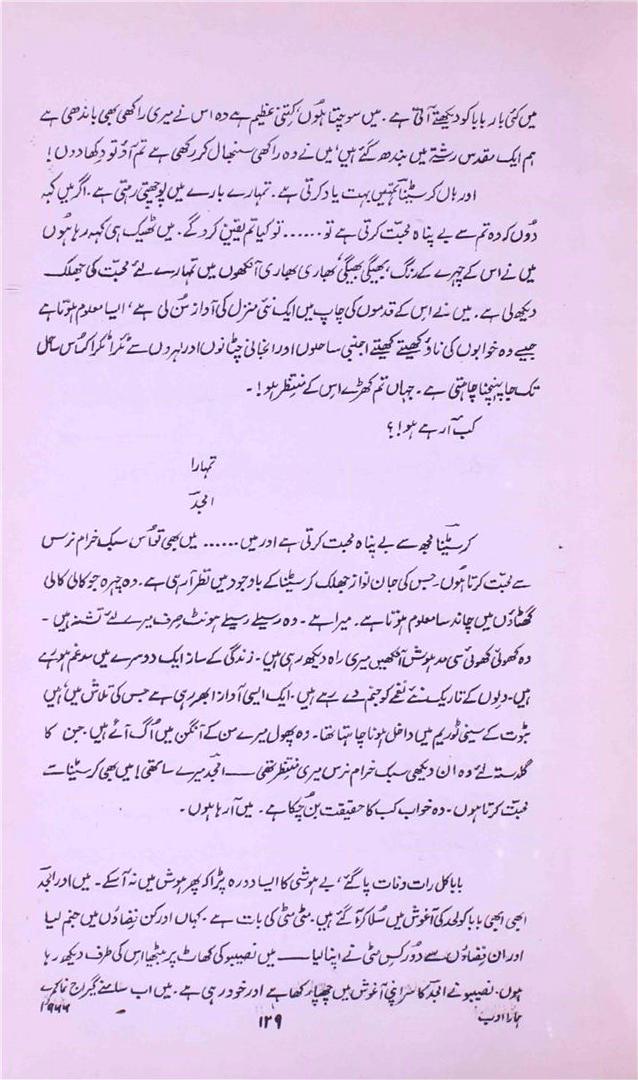 میں کئی بار بابا کو دیکھتے آتی ہے۔ میں سوچتا ہوں، کتنی عظیم ہے وہ اس نے میری راکھی بھی باندھی ہے
ہم ایک مقدس رشتہ میں بندھ گئے ہیں، میں نے وہ راکھی سنبھال کر رکھی ہے تم آؤ تو دکھا دوں!
اور ہاں کرسٹینا تمہیں بہت یاد کرتی ہے۔ تمہارے بارے میں پوچھتی رہتی ہے۔ اگر میں کہہ
دُوں کہ وہ تم سے بے پناہ محبت کرتی ہے تو ...... تو کیا تم یقین کرو گے۔ میں ٹھیک ہی کہہ رہا ہوں
میں نے اس کے چہرے کے رنگ، بھیگی بھیگی، بھاری بھاری آنکھوں میں تمہارے لئے محبت کی جھلک
دیکھ لی ہے۔ میں نے اس کے قدموں کی چاپ میں ایک نئی منزل کی آواز سُن لی ہے، ایسا معلوم ہوتا ہے
جیسے وہ خوابوں کی ناؤ کھیتے کھیتے اجنبی ساحلوں اور انجانی چٹانوں اور لہروں سے ٹکرا ٹکرا کر اُس ساحل
تک جا پہنچنا چاہتی ہے۔ جہاں تم کھڑے اس کے منتظر ہو!۔
کب آ رہے ہو!؟
تمہارا
امجد
کرسٹینا مجھ سے بے پناہ محبت کرتی ہے اور میں ...... میں بھی تو اُس سبک خرام نرس
سے محبت کرتا ہوں۔ جس کی جان نواز جھلک کرسٹینا کے باوجود میں نظر آ رہی ہے۔ وہ چہرہ جو کالی کالی
گھٹاؤں میں چاند سا معلوم ہوتا ہے۔ میرا ہے۔ وہ رسیلے رسیلے ہونٹ صرف میرے لئے تشنہ ہیں۔
وہ کھوئی کھوئی سی مدہوش آنکھیں میری راہ دیکھ رہی ہیں۔ زندگی کے ساز ایک دوسرے میں مدغم ہو رہے
ہیں۔ دلوں کے تار ایک نئے نغمے کو جنم دے رہے ہیں۔ ایک ایسی آواز ابھر رہی ہے جس کی تلاش میں، میں
بٹوت کے سینی ٹوریم میں داخل ہونا چاہتا تھا۔ وہ پھول میرے من کے آنگن میں اُگ آئے ہیں۔ جن کا
گلدستہ لئے وہ ان دیکھی سبک خرام نرس میری منتظر تھی —— امجد میرے ساتھی! میں بھی کرسٹینا سے
محبت کرتا ہوں۔ وہ خواب کب کا حقیقت بن چکا ہے۔ میں آ رہا ہوں۔
بابا کل رات وفات پا گئے، بے ہوشی کا ایسا دورہ پڑا کہ پھر ہوش میں نہ آ سکے۔ میں اور امجد
ابھی ابھی بابا کو لحد کی آغوش میں سُلا کر آ گئے ہیں۔ مٹی مٹی کی بات ہے۔ کہاں اور کن فضاؤں میں جنم لیا
اور ان فضاؤں سے دُور کس مٹی نے اپنا لیا —— میں نصیبو کی کھاٹ پر بیٹھا اس کی طرف دیکھ رہا
ہوں۔ نصیبو نے امجد کا سر اپنی آغوش میں چھپا رکھا ہے اور خود رہی ہے۔ میں اب سامنے گیراج نما کمرے
ہمارا ادب
۱۲۹
۱۹۶۶